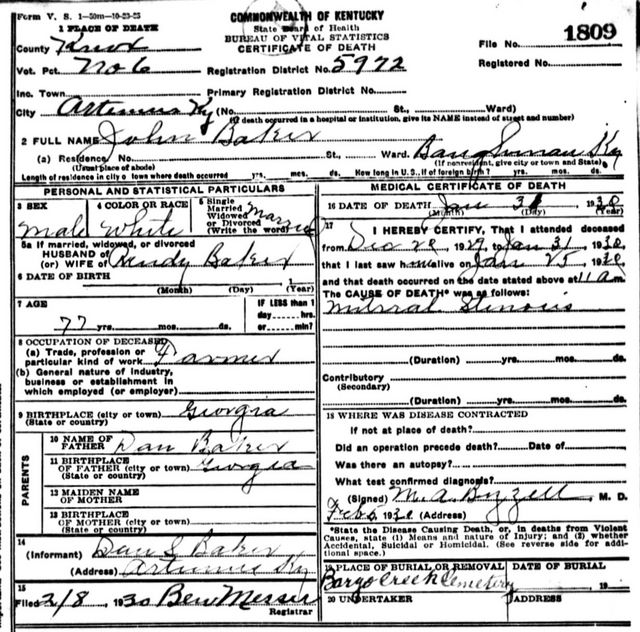 Form V. S. 1-50m-10-23-25
COMMONWEALTH OF KENTUCKY
State Board of Health
BUREAU OF VITAL STATISTICS
CERTIFICATE OF DEATH
1 PLACE OF DEATH
County Knox
File No. 1809
Vot. Pct. No 6
Registration District No. 5972
Registered No.
Inc. Town
Primary Registration District No.
City Artemus Ky (No. St., Ward)
(If death occurred in a hospital or institution, give its NAME instead of street and number)
2 FULL NAME John Baker
(a) Residence No. St., Ward. Ky
(Usual place of abode) (If nonresident, give city or town and State)
Length of residence in city or town where death occurred yrs. mos. ds. How long in U.S., if of foreign birth? yrs. mos. ds.
PERSONAL AND STATISTICAL PARTICULARS
3 SEX
Male
4 COLOR OR RACE
White
5 Single
Married
Widowed
or Divorced
(Write the word)
Married
5a If married, widowed, or divorced
HUSBAND of
(or) WIFE of Baker
6 DATE OF BIRTH
(Month) (Day) (Year)
7 AGE
77 yrs. mos. ds.
IF LESS than 1
day hrs.
or min?
8 OCCUPATION OF DECEASED
(a) Trade, profession or
particular kind of work Farmer
(b) General nature of industry,
business or establishment in
which employed (or employer)
9 BIRTHPLACE (city or town) Georgia
(State or country)
PARENTS
10 NAME OF
FATHER Dan Baker
11 BIRTHPLACE
OF FATHER (city or town) Georgia
(State or country)
12 MAIDEN NAME
OF MOTHER
13 BIRTHPLACE
OF MOTHER (city or town)
(State or country)
14
(Informant) Dan S Baker
(Address) Artemus Ky
15
Filed 2/8, 1930 Ben Messer
Registrar
MEDICAL CERTIFICATE OF DEATH
16 DATE OF DEATH Jan 31 1930
(Month) (Day) (Year)
17
I HEREBY CERTIFY, That I attended deceased
from Dec 20, 1929, to Jan 31, 1930,
that I last saw h alive on Jan 25, 1930,
and that death occurred on the date stated above at 11 am
The CAUSE OF DEATH* was as follows:
(Duration) yrs. mos. ds.
Contributory
(Secondary)
(Duration) yrs. mos. ds.
18 WHERE WAS DISEASE CONTRACTED
If not at place of death?
Did an operation precede death? Date of
Was there an autopsy?
What test confirmed diagnosis?
(Signed) M. A. Bizzell, M. D.
Feb 6, 1930 (Address)
*State the Disease Causing Death, or, in deaths from Violent
Causes, state (1) Means and nature of Injury; and (2) whether
Accidental, Suicidal or Homicidal. (See reverse side for addi-
tional space.)
19 PLACE OF BURIAL OR REMOVAL
Bargo Creek Cemetery
DATE OF BURIAL
19
20 UNDERTAKER
ADDRESS